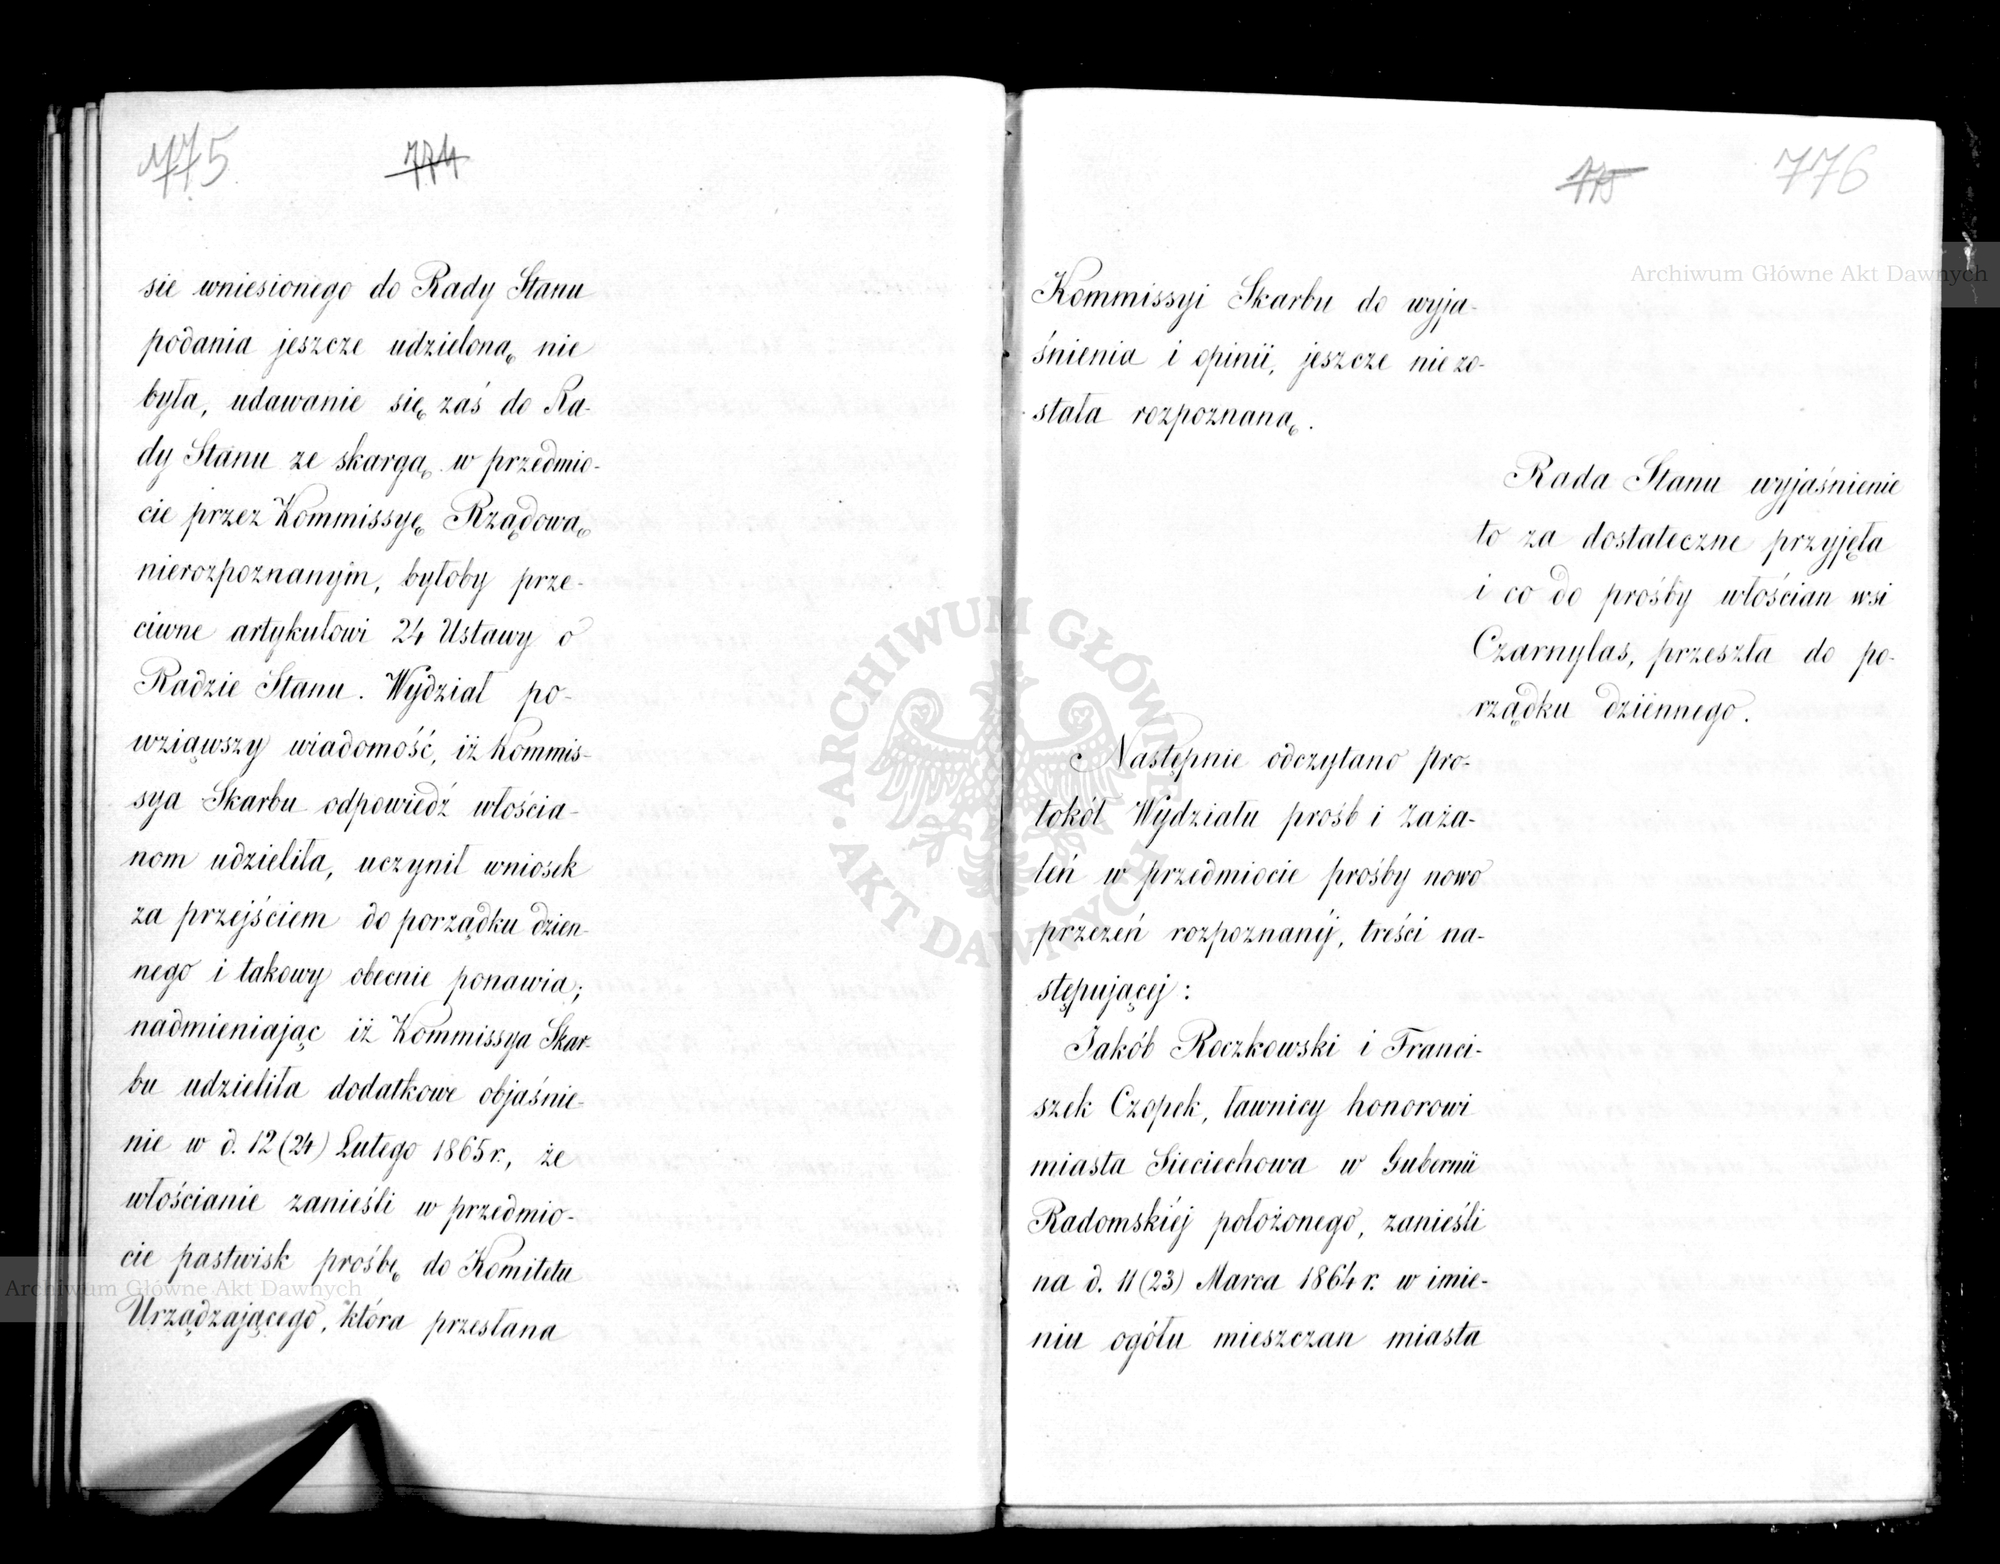 775
774
sie wniesionego do Rady Stanu
podania jeszcze udzieloną nie
była, udawanie się zaś do Ra-
dy Stanu ze skargą w przedmio-
cie przez Kommissyę Rządową
nierozpoznanym, byłoby prze-
ciwne artykułowi 24 Ustawy o
Radzie Stanu. Wydział po-
wziąwszy wiadomość, iż Kommis-
sya Skarbu odpowiedź włościa-
nom udzieliła, uczynił wniosek
za przejściem do porządku dzien-
nego i takowy obecnie ponawia;
nadmieniając iż Kommissya Skar-
bu udzieliła dodatkowe objaśnie-
nie w d. 12 (24) Lutego 1865 r., że
włościanie zanieśli w przedmio-
cie pastwisk prośbę do Komitetu
Urządzającego, która przesłana
775
776
Kommissyi Skarbu do wyja-
śnienia i opinii, jeszcze niezo-
stała rozpoznaną.
Rada Stanu wyjaśnienie
to za dostateczne przyjęła
i co do prośby włościan wsi
Czarnylas, przeszła do po-
rządku dziennego.
Następnie odczytano pro-
tokół Wydziału próśb i zaża-
leń w przedmiocie prośby nowo
przezeń rozpoznanéj, treści na-
stępującej:
Jakób Roczkowski i Franci-
szek Czopek, ławnicy honorowi
miasta Sieciechowa w Gubernii
Radomskiéj położonego, zanieśli
na d. 11 (23) Marca 1864 r. w imie-
niu ogółu mieszczan miasta
Archiwum Główne Akt Dawnych
ARCHIWUM GŁÓWNE · AKT DAWNYCH ·
Archiwum Główne Akt Dawnych